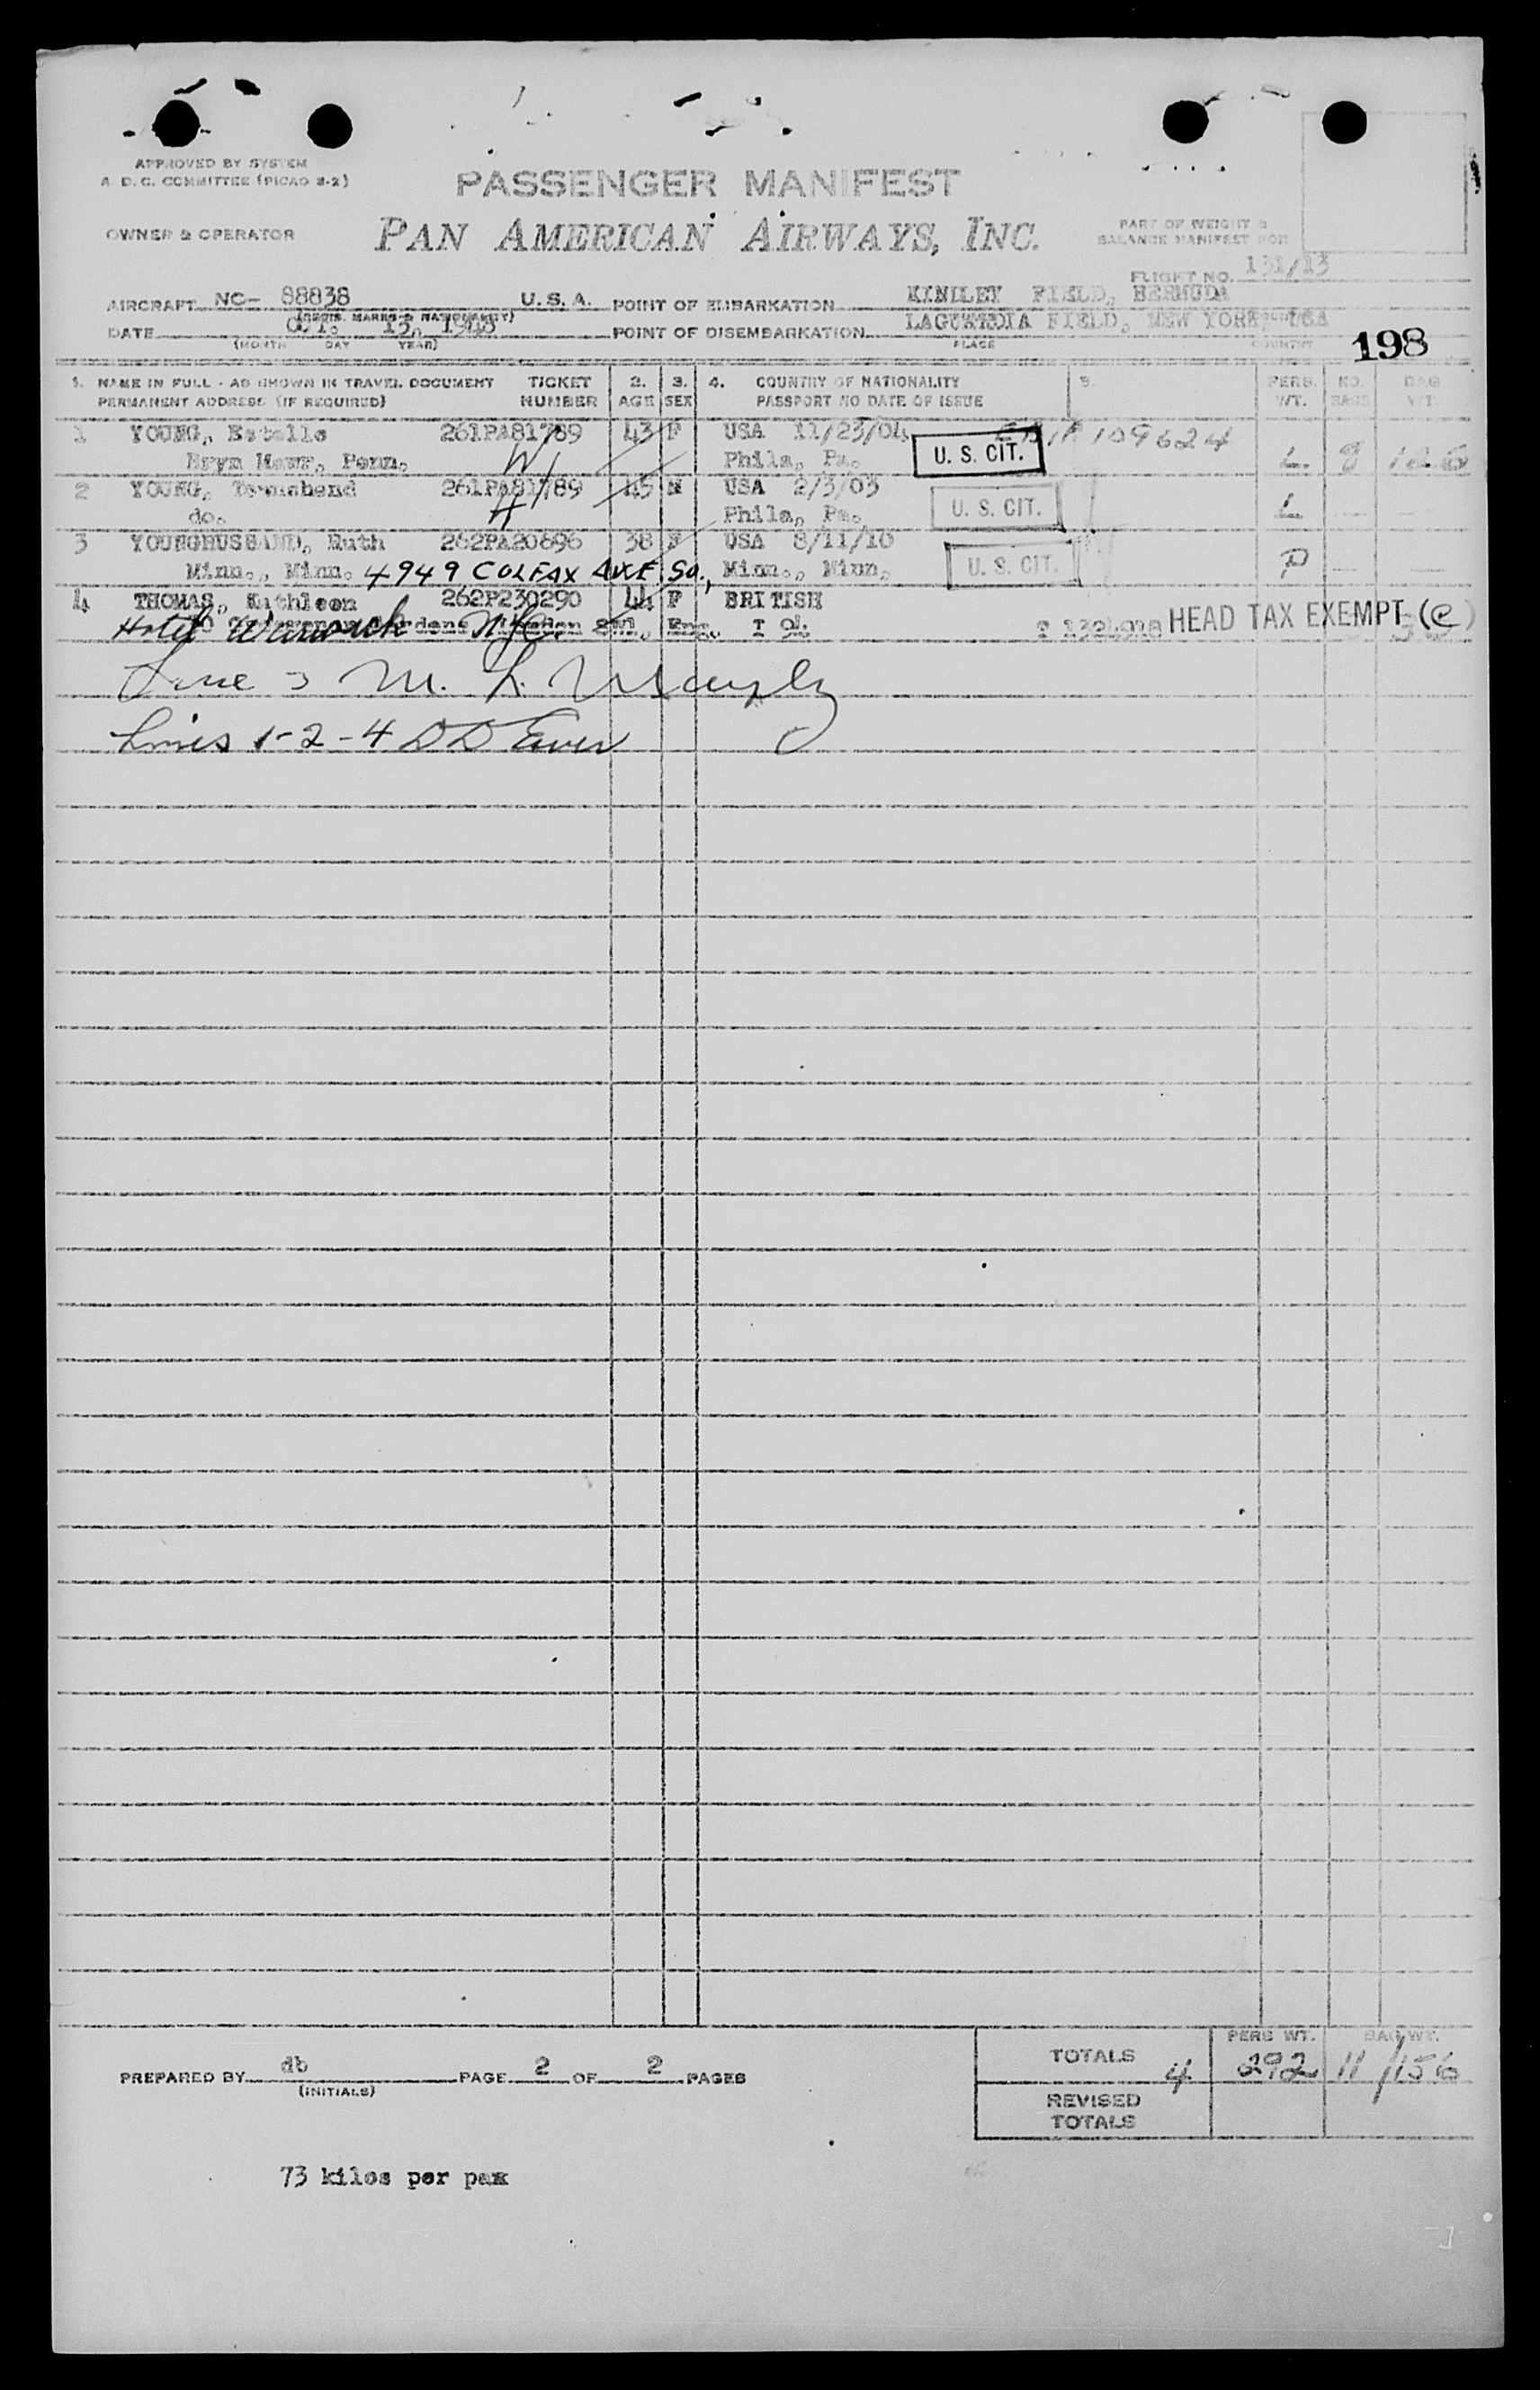 APPROVED BY SYSTEM
A. D. C. COMMITTEE (PICAO 2-2)
PASSENGER MANIFEST
OWNER & OPERATOR
PAN AMERICAN AIRWAYS, INC.
PART OF WEIGHT &
BALANCE MANIFEST FOR
FLIGHT NO. 131/13
AIRCRAFT NC- 88838 U. S. A. POINT OF EMBARKATION KINDLEY FIELD, BERMUDA
(REGIS. MARKS & NATIONALITY)
DATE OCT. 13, 1948 POINT OF DISEMBARKATION LAGUARDIA FIELD, NEW YORK, USA
(MONTH DAY YEAR) PLACE COUNTRY
198
1. NAME IN FULL - AS SHOWN IN TRAVEL DOCUMENT TICKET 2. 3. 4. COUNTRY OF NATIONALITY 5. PERS. NO. BAG
PERMANENT ADDRESS (IF REQUIRED) NUMBER AGE SEX PASSPORT NO DATE OF ISSUE WT. BAGS WT.
1 YOUNG, Estelle 261PA81789 43 F USA 11/23/04 109624
Bryn Mawr, Penn. W Phila, Pa. U. S. CIT. L 8 126
2 YOUNG, Townshend 261PA81789 45 M USA 2/3/03
do. H Phila, Pa. U. S. CIT. L
3 YOUNGHUSBAND, Ruth 262PA20696 38 F USA 8/11/10
Minn., Minn. 4949 COLFAX AVE SO., Minn., Minn. U. S. CIT. P
4 THOMAS, Kathleen 262P230290 44 F BRITISH
Hotel Warwick NYC. London Eng. I 94 T 1324918 HEAD TAX EXEMPT (C)
Line 3 M. L.
Lines 1-2-4 DD
PREPARED BY db PAGE 2 OF 2 PAGES
(INITIALS)
PERS WT. BAG WT.
TOTALS 4 292 11/156
REVISED
TOTALS
73 kilos per pax